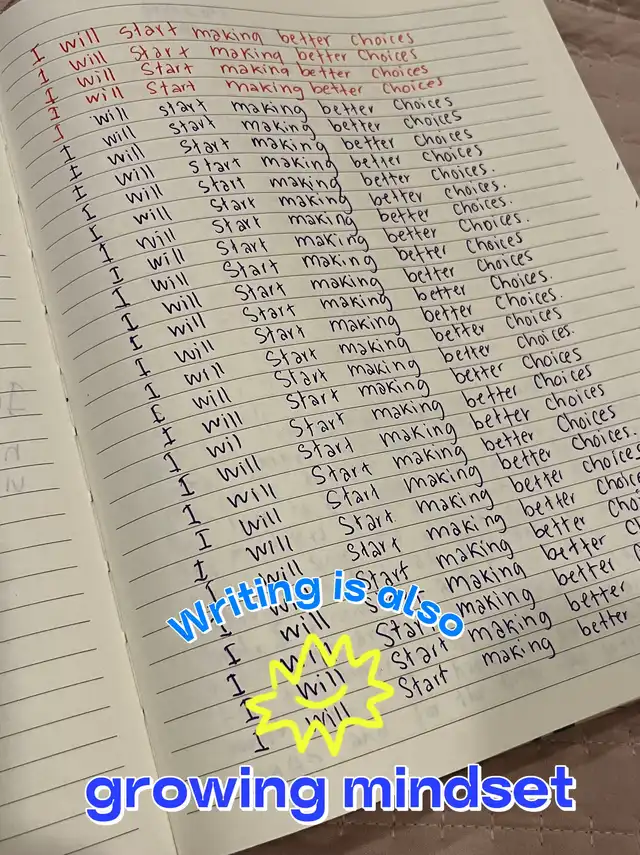 I will start making better choices
I will Start making better Choices
I will Start making better Choices
I will Start making better Choices
I will start making better Choices
I will start making better Choices
I will Start making better Choices
I will Start making better Choices
I will Start making better Choices.
I will Start making better choices.
I will Start making better Choices.
I will Start making better Choices.
I will Start making better Choices
I will Start making better Choices
I will Start making better Choices.
I will Start making better Choices.
I will Start making better Choices
I will Start making better Choices.
I will Start making better Choices
I wil Start making better Choices
I will Start making better Choices
I will Start making better Choices
I will Start making better Choices.
I will Start making better choices
I will Start making better
I will Start making better
I will Start making better
I will Start making better
I will Start making better
I will Start making better
Writing is also
growing mindset